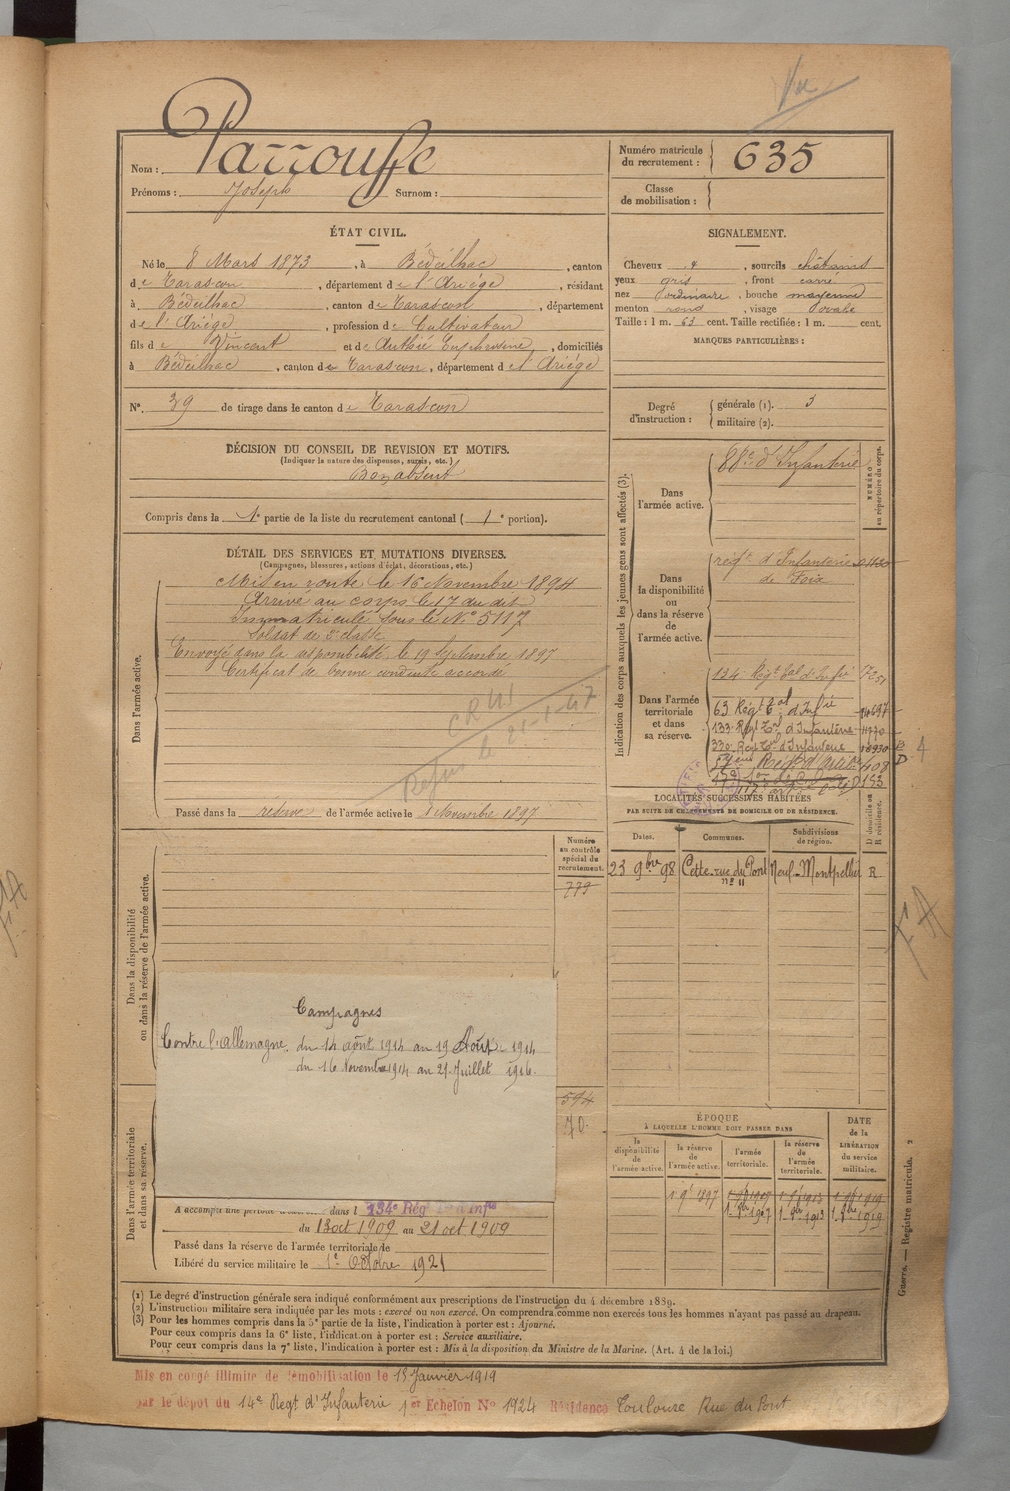 Vu
Nom : Parrouffe
Prénoms : Joseph Surnom :
Numéro matricule du recrutement : 635
Classe de mobilisation :
ÉTAT CIVIL.
Né le 8 Mars 1873, à Bédeilhac, canton
de Tarascon, département de l'Ariége, résidant
à Bédeilhac, canton de Tarascon, département
de l'Ariége, profession de Cultivateur
fils de Vincent et de Authié Euphrosine, domiciliés
à Bédeilhac, canton de Tarascon, département de l'Ariége
N°. 39 de tirage dans le canton de Tarascon
SIGNALEMENT.
Cheveux et, sourcils châtains
yeux gris, front carré
nez ordinaire, bouche moyenne
menton rond, visage ovale
Taille : 1 m. 63 cent. Taille rectifiée : 1 m. cent.
MARQUES PARTICULIÈRES :
Degré d'instruction : générale (1). 3
militaire (2).
DÉCISION DU CONSEIL DE REVISION ET MOTIFS.
(Indiquer la nature des dispenses, sursis, etc.)
Bon absent
Compris dans la 1e partie de la liste du recrutement cantonal ( 1e portion).
DÉTAIL DES SERVICES ET MUTATIONS DIVERSES.
(Campagnes, blessures, actions d'éclat, décorations, etc.)
Dans l'armée active.
Mis en route le 16 Novembre 1894
Arrivé au corps le 17 du dit
Immatriculé sous le N° 5117
Soldat de 2e classe
Envoyé dans la disponibilité le 19 Septembre 1897
Certificat de bonne conduite accordé
Refus le 21-1-47
Passé dans la réserve de l'armée active le 1 Novembre 1897
Indication des corps auxquels les jeunes gens sont affectés (3).
NUMÉRO au répertoire du corps.
Dans l'armée active.
88e d'Infanterie
Dans la disponibilité ou dans la réserve de l'armée active.
régt. d'Infanterie
de Foix
Dans l'armée territoriale et dans sa réserve.
134 Régt tal d'Infie
63 Régt tal d'Infie
133 Régt tal d'Infanterie 11770
330 Régt tal d'Infanterie
D 153
LOCALITÉS SUCCESSIVES HABITÉES
PAR SUITE DE CHANGEMENTS DE DOMICILE OU DE RÉSIDENCE.
D domicile ou R résidence.
Dates. Communes. Subdivisions de région.
23 9bre 98 Cette rue du Pont Neuf Montpellier R
n° 11
Numéro au contrôle spécial du recrutement.
779
594
70.
Dans la disponibilité ou dans la réserve de l'armée active.
Campagnes
Contre l'Allemagne. du 14 août 1914 au 19 Août 1914
du 16 Novembre 1914 au 25 Juillet 1916.
ÉPOQUE
A LAQUELLE L'HOMME DOIT PASSER DANS
DATE de la LIBÉRATION du service militaire.
la disponibilité de l'armée active. la réserve de l'armée active. l'armée territoriale. la réserve de l'armée territoriale.
1 9b 1897
1 9bre 1907 1 9bre 1913 1 9bre 1919
Dans l'armée territoriale et dans sa réserve.
A accompli une période d'exercices dans l 134e Rég Tal d'Infie
du 13 oct 1909 au 21 oct 1909
Passé dans la réserve de l'armée territoriale le
Libéré du service militaire le 1er Octobre 1921
(1) Le degré d'instruction générale sera indiqué conformément aux prescriptions de l'instruction du 4 décembre 1889.
(2) L'instruction militaire sera indiquée par les mots : exercé ou non exercé. On comprendra comme non exercés tous les hommes n'ayant pas passé au drapeau.
(3) Pour les hommes compris dans la 5e partie de la liste, l'indication à porter est : Ajourné.
Pour ceux compris dans la 6e liste, l'indication à porter est : Service auxiliaire.
Pour ceux compris dans la 7e liste, l'indication à porter est : Mis à la disposition du Ministre de la Marine. (Art. 4 de la loi.)
Guerre. — Registre matricule. 2
FA
Mis en congé illimité de démobilisation le 15 Janvier 1919
par le dépôt du 14e Régt d'Infanterie 1er Echelon N° 1924 Résidence Toulouse Rue du Pont